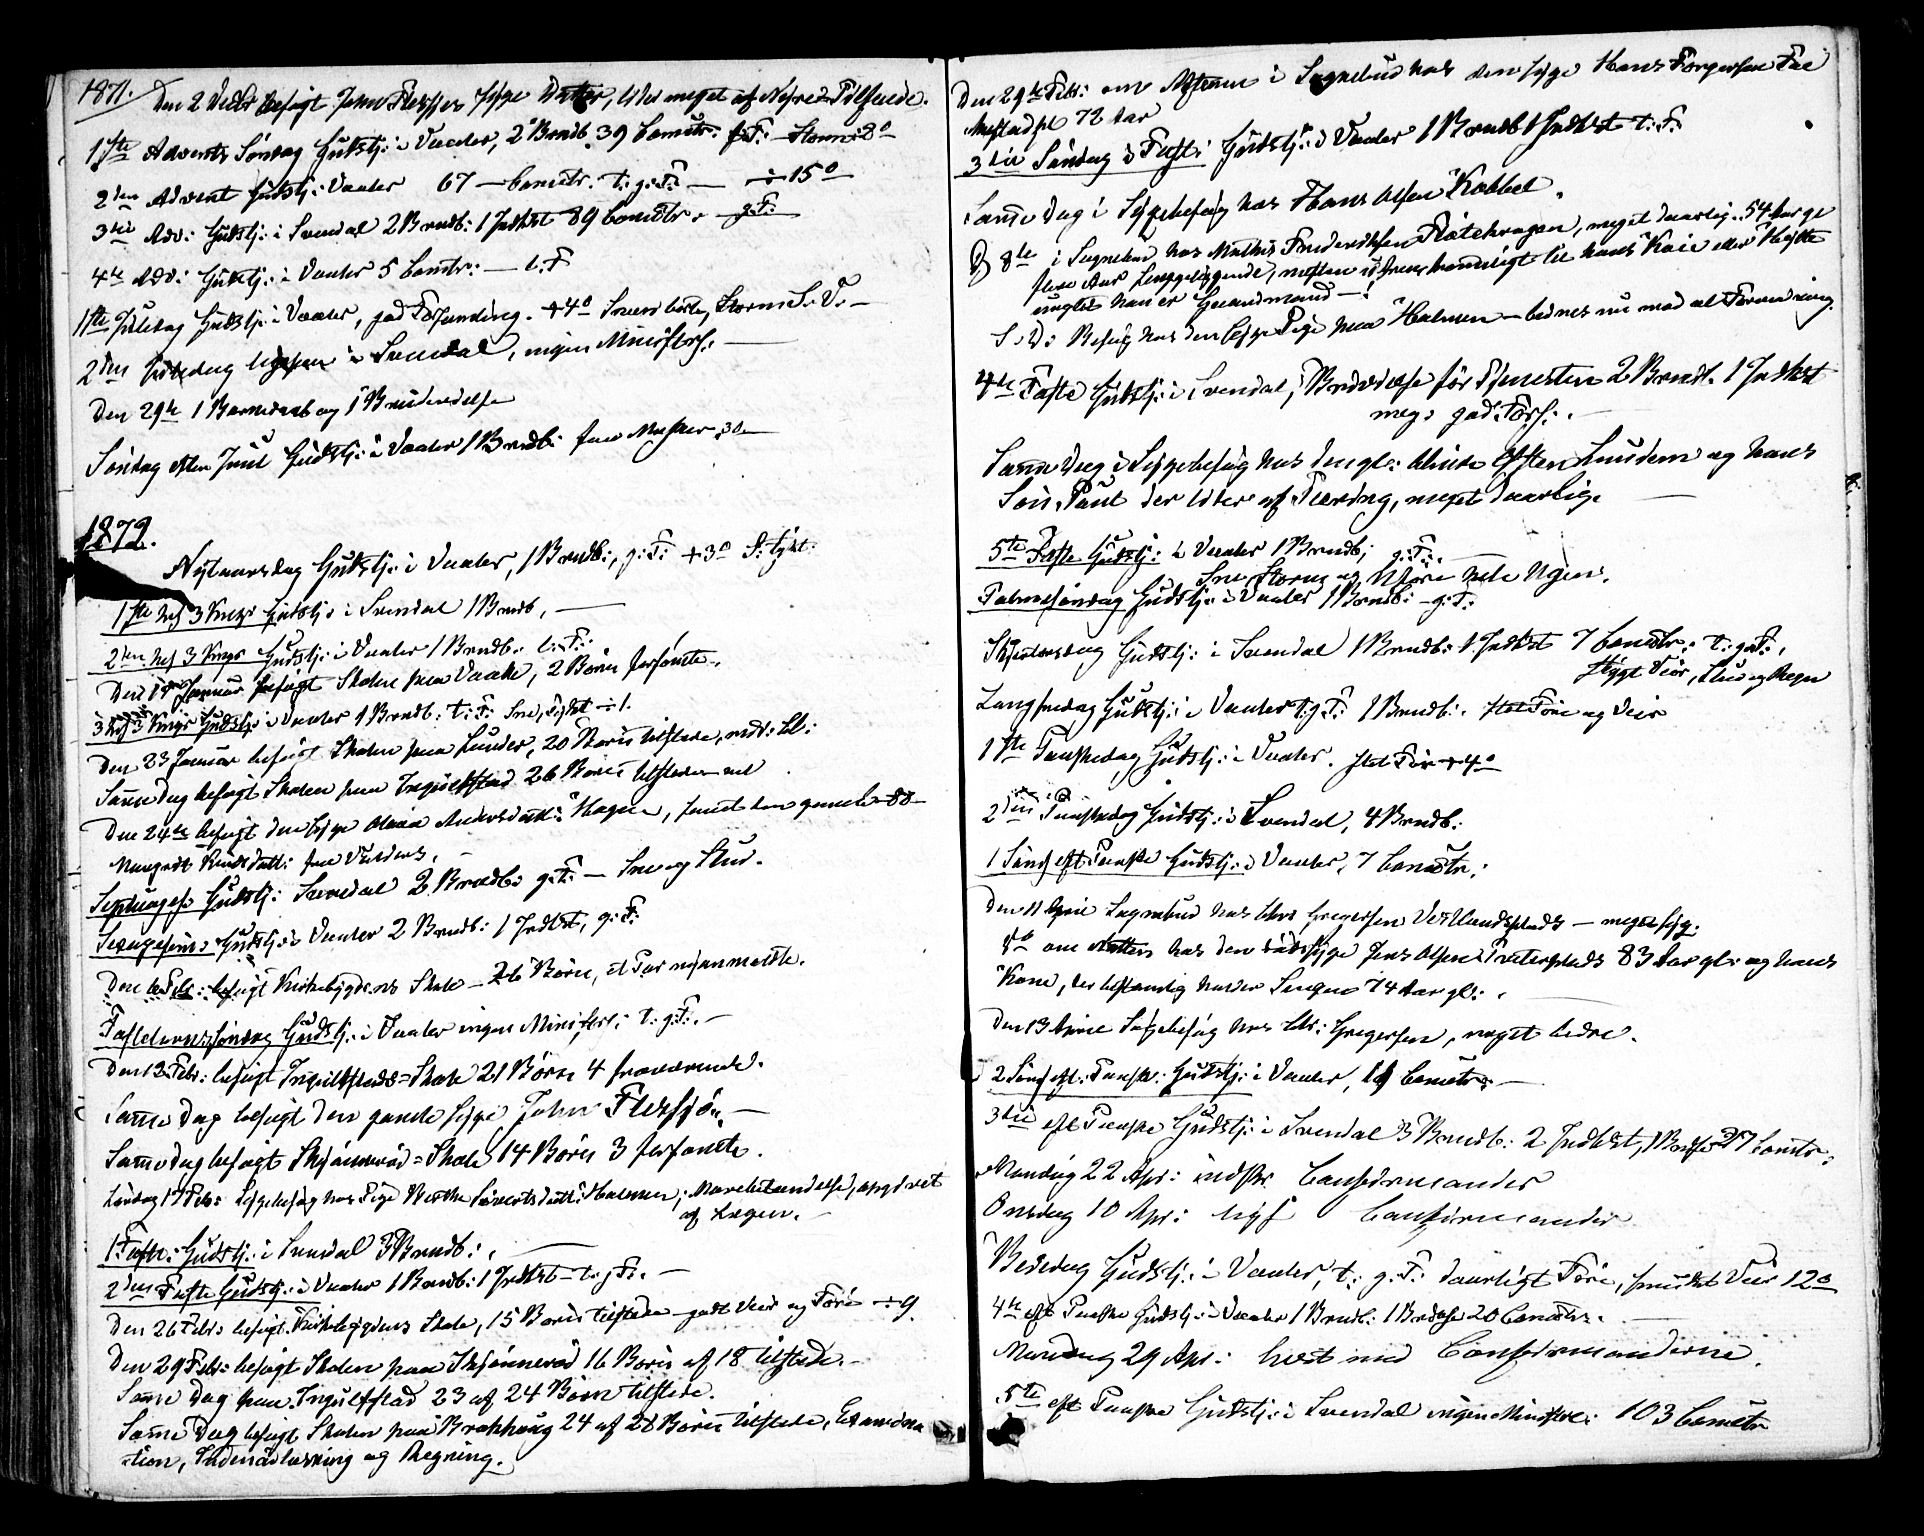 1871. Den 2 Decbr besøgt John syge Datter, lider meget af
1ste Advents Søndag Gudstj: i Vaaler, 2 Barnd. 39 Comctr. g: F: Storm ÷ 8°
2den Advent Gudstj: i Vaaler 67 Comctr. t: g: F: — ÷ 15°
3die Adv: Gudstj: i Svendal 2 Barndb: 1 Indkst 89 Comctr. g: F:
4de Adv: Gudstj: i Vaaler 5 Comctr: — t: F
1ste Juledag Gudstj: i Vaaler, god Forsamling. + 4° Sneen borte, Storm S. V. —
2den Juledag ligesaa i Svendal, ingen Ministerf. —
Den 29de 1 Barnedaab og 1 Brudevielse
Søndag efter Juul Gudstj: i Vaaler 1 Barndb:
1872.
Nytaarsdag Gudstj: i Vaaler, 1 Barndb:, g: F: + 3° S:
1ste H 3 Kongr Gudstj: i Svendal 1 Barndb, —
2den H 3 Kongr Gudstj: i Vaaler 1 Barndb. t: F:
Den Januar besøgt Skolen paa Vaale, 2 Børn forsømte.
3 H 3 Kongr Gudstj: i Vaaler 1 Barndb: t: F: Sne, ÷ 1.
Den 23 Januar besøgt Skolen paa Lunder, 20 Børn tilstede,
Samme Dag besøgt Skolen paa Ingulfstad 26 Børn tilstede
Den 24de besøgt den syge Maria Andersdatt: Hagen, samt den gamle 88
Margrete Knudsdatt: paa
Septuages Gudstj: Svendal 2 Barndb: g: F: — Sne og Slud.
Sexagesima Gudstj: i Vaaler 2 Barndb: 1 Indkst, g: F:
Den Feb: besøgt Kirkebygdens Skole — 26 Børn, et Par nyanmeldte.
Fastelavnssøndag Gudstj: i Vaaler ingen Ministerf: t: g: F:. —
Den 13 Feb: besøgt Ingulfstads=Skole 21 Børn 4 fraværende.
Samme Dag besøgt den gamle syge John Flesjø. —
Samme Dag besøgt Skjønnerød=Skole 14 Børn 3 forsømte.
Løvdag 17 Feb: Sygebesøg hos Pige Marthe Halmen, Mavebetændelse, opgivet
af Lægen. —
1 Faste: Gudstj: i Svendal 3 Barndb:. —
2den Faste Gudstj: i Vaaler 1 Barndb: 1 Indkst — t: g F:. —
Den 26 Feb: besøgt Kirkebygdens Skole, 15 Børn tilstede — godt Veir og Føre ÷ 9.
Den 29 Feb: besøgt Skolen paa Skjønnerød 16 Børn af 18 tilstede. —
Samme Dag paa Ingulfstad 23 af 24 Børn tilstede.
Samme Dag besøgt Skolen paa Brakhaug 24 af 28 Børn tilstede, Examina
tion, Indenadlæsning og Regning.
Den 29de Feb: om Aftenen i Sognebud hos den syge Hans Jørgensen
72 Aar
3die Søndag i Faste Gudstj: i Vaaler 1 Barndb 1 Indkst t: F:
Samme Dag i Sygebesøg hos Hans Olsen Kabbel.
D 8de i Sognebud hos Mathis Frederiksen Flatekragen, meget daarlig. 54 Aar gl
flere Aar Sengeliggende, næsten ufremkommeligt til hans Kaie eller Hytte
uagtet han er Gaardmand —!
S. D: Besøg hos den syge Pige paa Halmen — ledes nu mod al Formodning.
4de Faste Gudstj: i Svendal, Brudevielse før Tjenesten 2 Barndb. 1 Indkst
meg: god: Fors:. —
Samme Dag i Sygebesøg hos den gl: Enke og hans
Søn Paul der lider af Tæring, meget daarlig. —
5te Faste Gudstj: i Vaaler 1 Barndb; g: F:.
Sne, Storm og Uføre hele Ugen.
Palmesøndag Gudstj: i Vaaler 1 Barndb: — g: F:
Skjærtorsdag Gudstj: i Svendal 1 Barndb: 1 Indkst 7 Comctr: t: g F:,
stygt Veir, Slud og Regn
Langfredag Gudstj: i Vaaler t: g: F: 1 Barndb:. slet Føre og Veir
1ste Paaskedag Gudstj: i Vaaler. slet Føre + 4°
2den Paaskedag Gudstj: i Svendal, 4 Barndb:
1 Sønd eft Paaske Gudstj: i Vaaler, 7 Comctr:
Den 11 April Sognebud hos Chr Gregersen — meget syg.
D° om Natten hos den syge Jens Olsen 83 Aar gl: og hans
Kone, der bestandig holder Sengen 74 Aar gl:. —
Den 13 April Sygebesøg hos Chr: Gregersen, noget bedre.
2 Sønd eft. Paaske: Gudstj: i Vaaler, Comctr: —
3die eft Paaske Gudstj: i Svendal 3 Barndb: 2 Indkst, 27 Comctr:
Mandag 22 Apr: indskr Confirmander
Onsdag 10 Apr: Confirmander
Bededag Gudstj: i Vaaler, t: g: F: daarligt Føre, smukt Veir 12°
4de eft Paaske Gudstj: i Vaaler 1 Barndb: 1 Brudvie 20 Comctr. —
Mandag 29 Apr: læst med Confirmanderne.
5te eft Paaske Gudstj: i Svendal ingen Ministerf: 103 Comctr